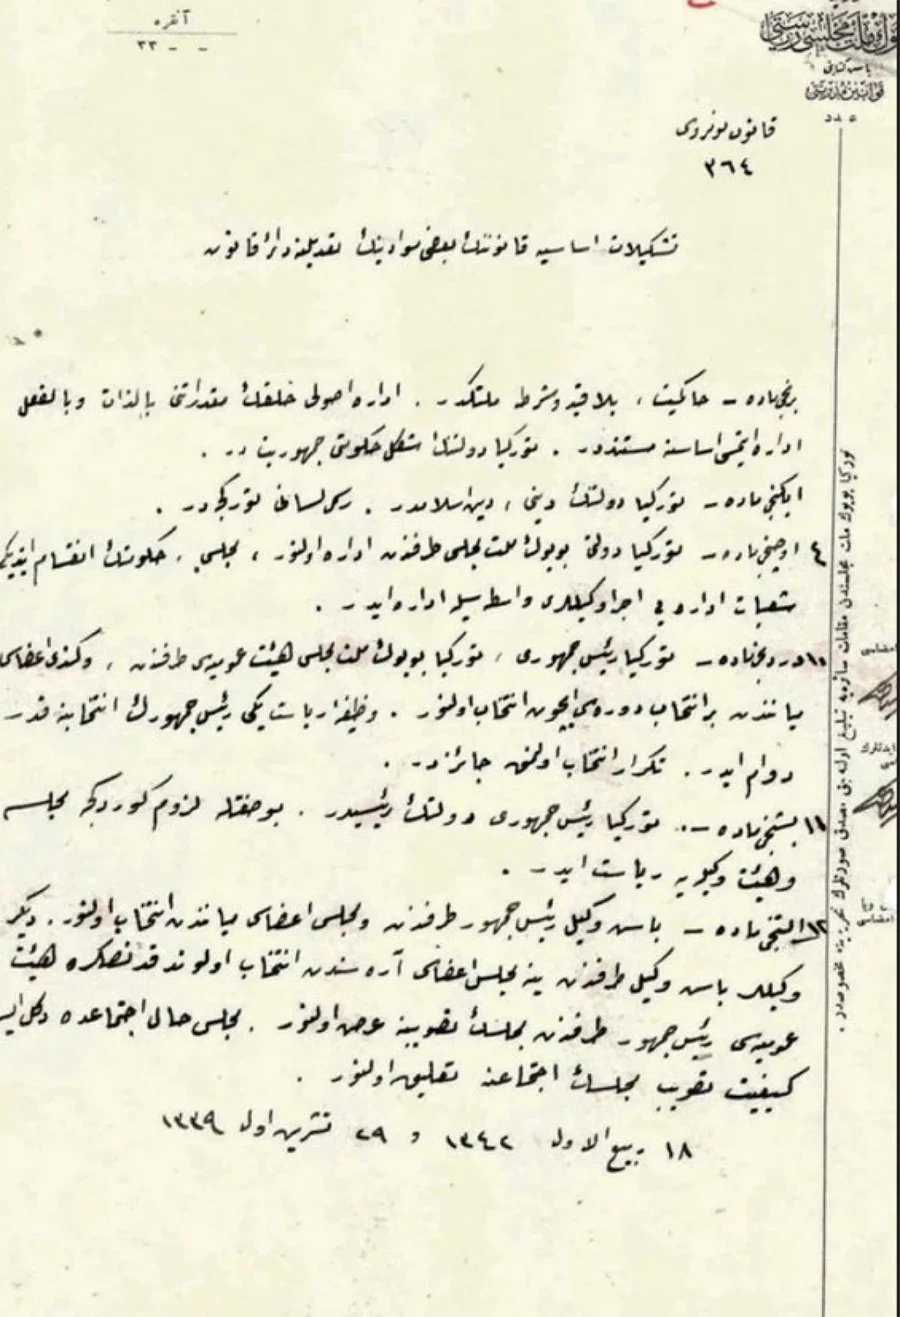 آنقره
٣٣ - -
بيوك ملت مجلسى رياستى
باش كتابتى
قوانين مديريتى
عدد
قانون نومروسى
٣٦٤
تشكيلات اساسيه قانوننك بعض موادينك تعديلنه دائر قانون
برنجى ماده – حاكميت ، بلا قيد و شرط ملتكدر . اداره اصولى خلقك مقدراتنى بالذات و بالفعل
اداره ايتمسى اساسنه مستنددر . توركيا دولتنك شكل حكومتى جمهوريت در .
ايكنجى ماده – توركيا دولتنك دينى ، دين اسلامدر . رسمى لسانى توركجه در .
٤ اوچنجى ماده – توركيا دولتى بويوك ملت مجلسى طرفندن اداره اولنور ، مجلس ، حكومتك انقسام ايتديكى
شعبات اداره يى اجرا وكيللرى واسطه سيله اداره ايدر .
١٠ دردنجى ماده – توركيا رئيس جمهورى ، توركيا بويوك ملت مجلسى هيئت عموميه سى طرفندن ، و كندى اعضاسى
ميانندن بر انتخاب دوره سى ايچون انتخاب اولنور . وظيفه رياست يكى رئيس جمهورك انتخابنه قدر
دوام ايدر . تكرار انتخاب اولنمق جائزدر .
١١ بشنجى ماده – توركيا رئيس جمهورى دولتك رئيسيدر . بو صفتله لزوم كوردكجه مجلسه
و هيئت وكيليه رياست ايدر .
١٢ التنجى ماده – باش وكيل رئيس جمهور طرفندن و مجلس اعضاسى ميانندن انتخاب اولنور . ديكر
وكيللر باش وكيل طرفندن ينه مجلس اعضاسى آره سندن انتخاب اولوندقدنصكره هيئت
عموميه سى رئيس جمهور طرفندن مجلسك تصويبنه عرض اولنور . مجلس حال اجتماعده دكل ايسه
كيفيت تصويب مجلسك اجتماعنه تعليق اولنور .
١٨ ربيع الاول ١٣٤٢ و ٢٩ تشرين اول ١٣٣٩
توركيا بويوك ملت مجلسندن مقامات سائره يه تبليغ اولنه جق مصدق صورتلرك تحريرينه مخصوصدر .
امضاسى
ايدنلرك
امضاسى